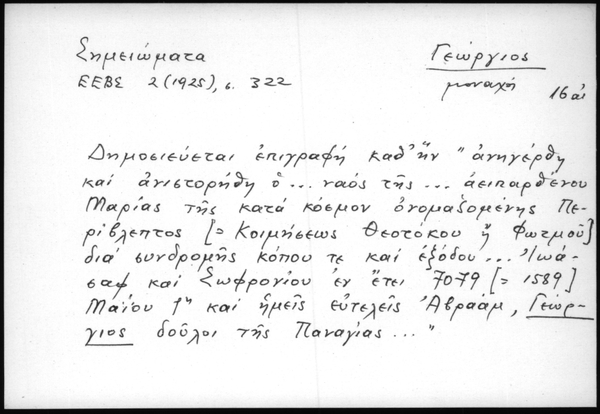 Σημειώματα
Γεώργιος
ΕΕΒΣ 2 (1925), σ. 322
μοναχή
16 αἰ
Δημοσιεύεται ἐπιγραφή καθ' ἥν "ἀνηγέρθη
καί ἀνιστορήθη ὁ ... ναός τῆς ... ἀειπαρθένου
Μαρίας τῆς κατά κόσμον ὀνομαζομένης Πε-
ρίβλεπτος [= Κοιμήσεως Θεοτόκου ἤ Φωτμοῦ]
διά συνδρομῆς κόπου τε καί ἐξόδου ... Ἰωά-
σαφ καί Σωφρονίου ἐν ἔτει 7079 [= 1589]
Μαΐου 1ῃ καί ἡμεῖς εὐτελεῖς Ἀβραάμ, Γεώρ-
γιος δοῦλοι τῆς Παναγίας ..."